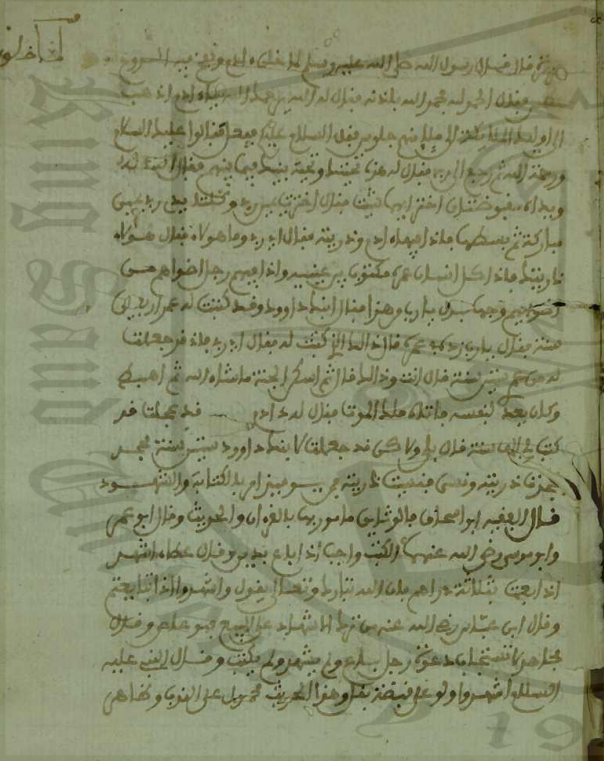 قال قال رسول الله صلى الله عليه وسلم لما خلق الله ادم ونفخ فيه الروح
عطس فقال الحمد لله فحمد الله باذنه فقال له ربه يرحمك الله يا ادم اذهب
الى اوليك الملايكة الى ملإ منهم جلوس فقل السلام عليكم ففعل فقالوا عليك السلام
ورحمة الله ثم رجع الى ربه فقال له هذه تحيتك وتحية بنيك فيما بينهم فقال الله له
ويداه مقبوضتان اختر ايهما شئت فقال اخترت يمين ربي وكلتا يدي ربي يمين
مباركة ثم بسطها فاذا فيها ادم وذريته فقال اي رب وما هولاء فقال هولاء
ذريتك فاذا كل انسان عمره مكتوب بين عينيه واذا فيهم رجل اضواهم من
اضوايهم وجها قال يا رب من هذا فقال ابنك داوود وقد كتبت له عمر اربعين
سنة فقال يا رب زد في عمره قال ذاك الذي كتبت له فقال اي رب فاني قد جعلت
له من عمري ستين سنة قال انت وذاك قال ثم اسكن الجنة ما شاء الله ثم اهبط
وكان يعد لنفسه فاتاه ملك الموت فقال له ادم قد عجلت قد
كتب لي الف سنة قال بلى ولاكن قد جعلت لابنك داوود ستين سنة فجحد
فجحدت ذريته ونسي فنسيت ذريته فمن يومئذ امر بالكتاب والشهود
قال الفقيه ابو اسحاق فالوثايق مامور بها بالقرءان والحديث وقال ابن عمر
وابو موسى رضي الله عنهما الكتب واجب اذا باع بدين وقال عطاء اشهد
اذا بعت بثلاثة دراهم فان الله تبارك وتعالى يقول واشهدوا اذا تبايعتم
وقال ابن عباس رضي الله عنه من ترك الاشهاد على البيع فهو عاص وقال
مجاهد لا تستجاب دعوة رجل باع ولم يشهد ولم يكتب وقال النبي عليه
السلام اشهدوا ولو على قبضة بقل وهذا الحديث محمول على الندب وكفا هي
King Saud